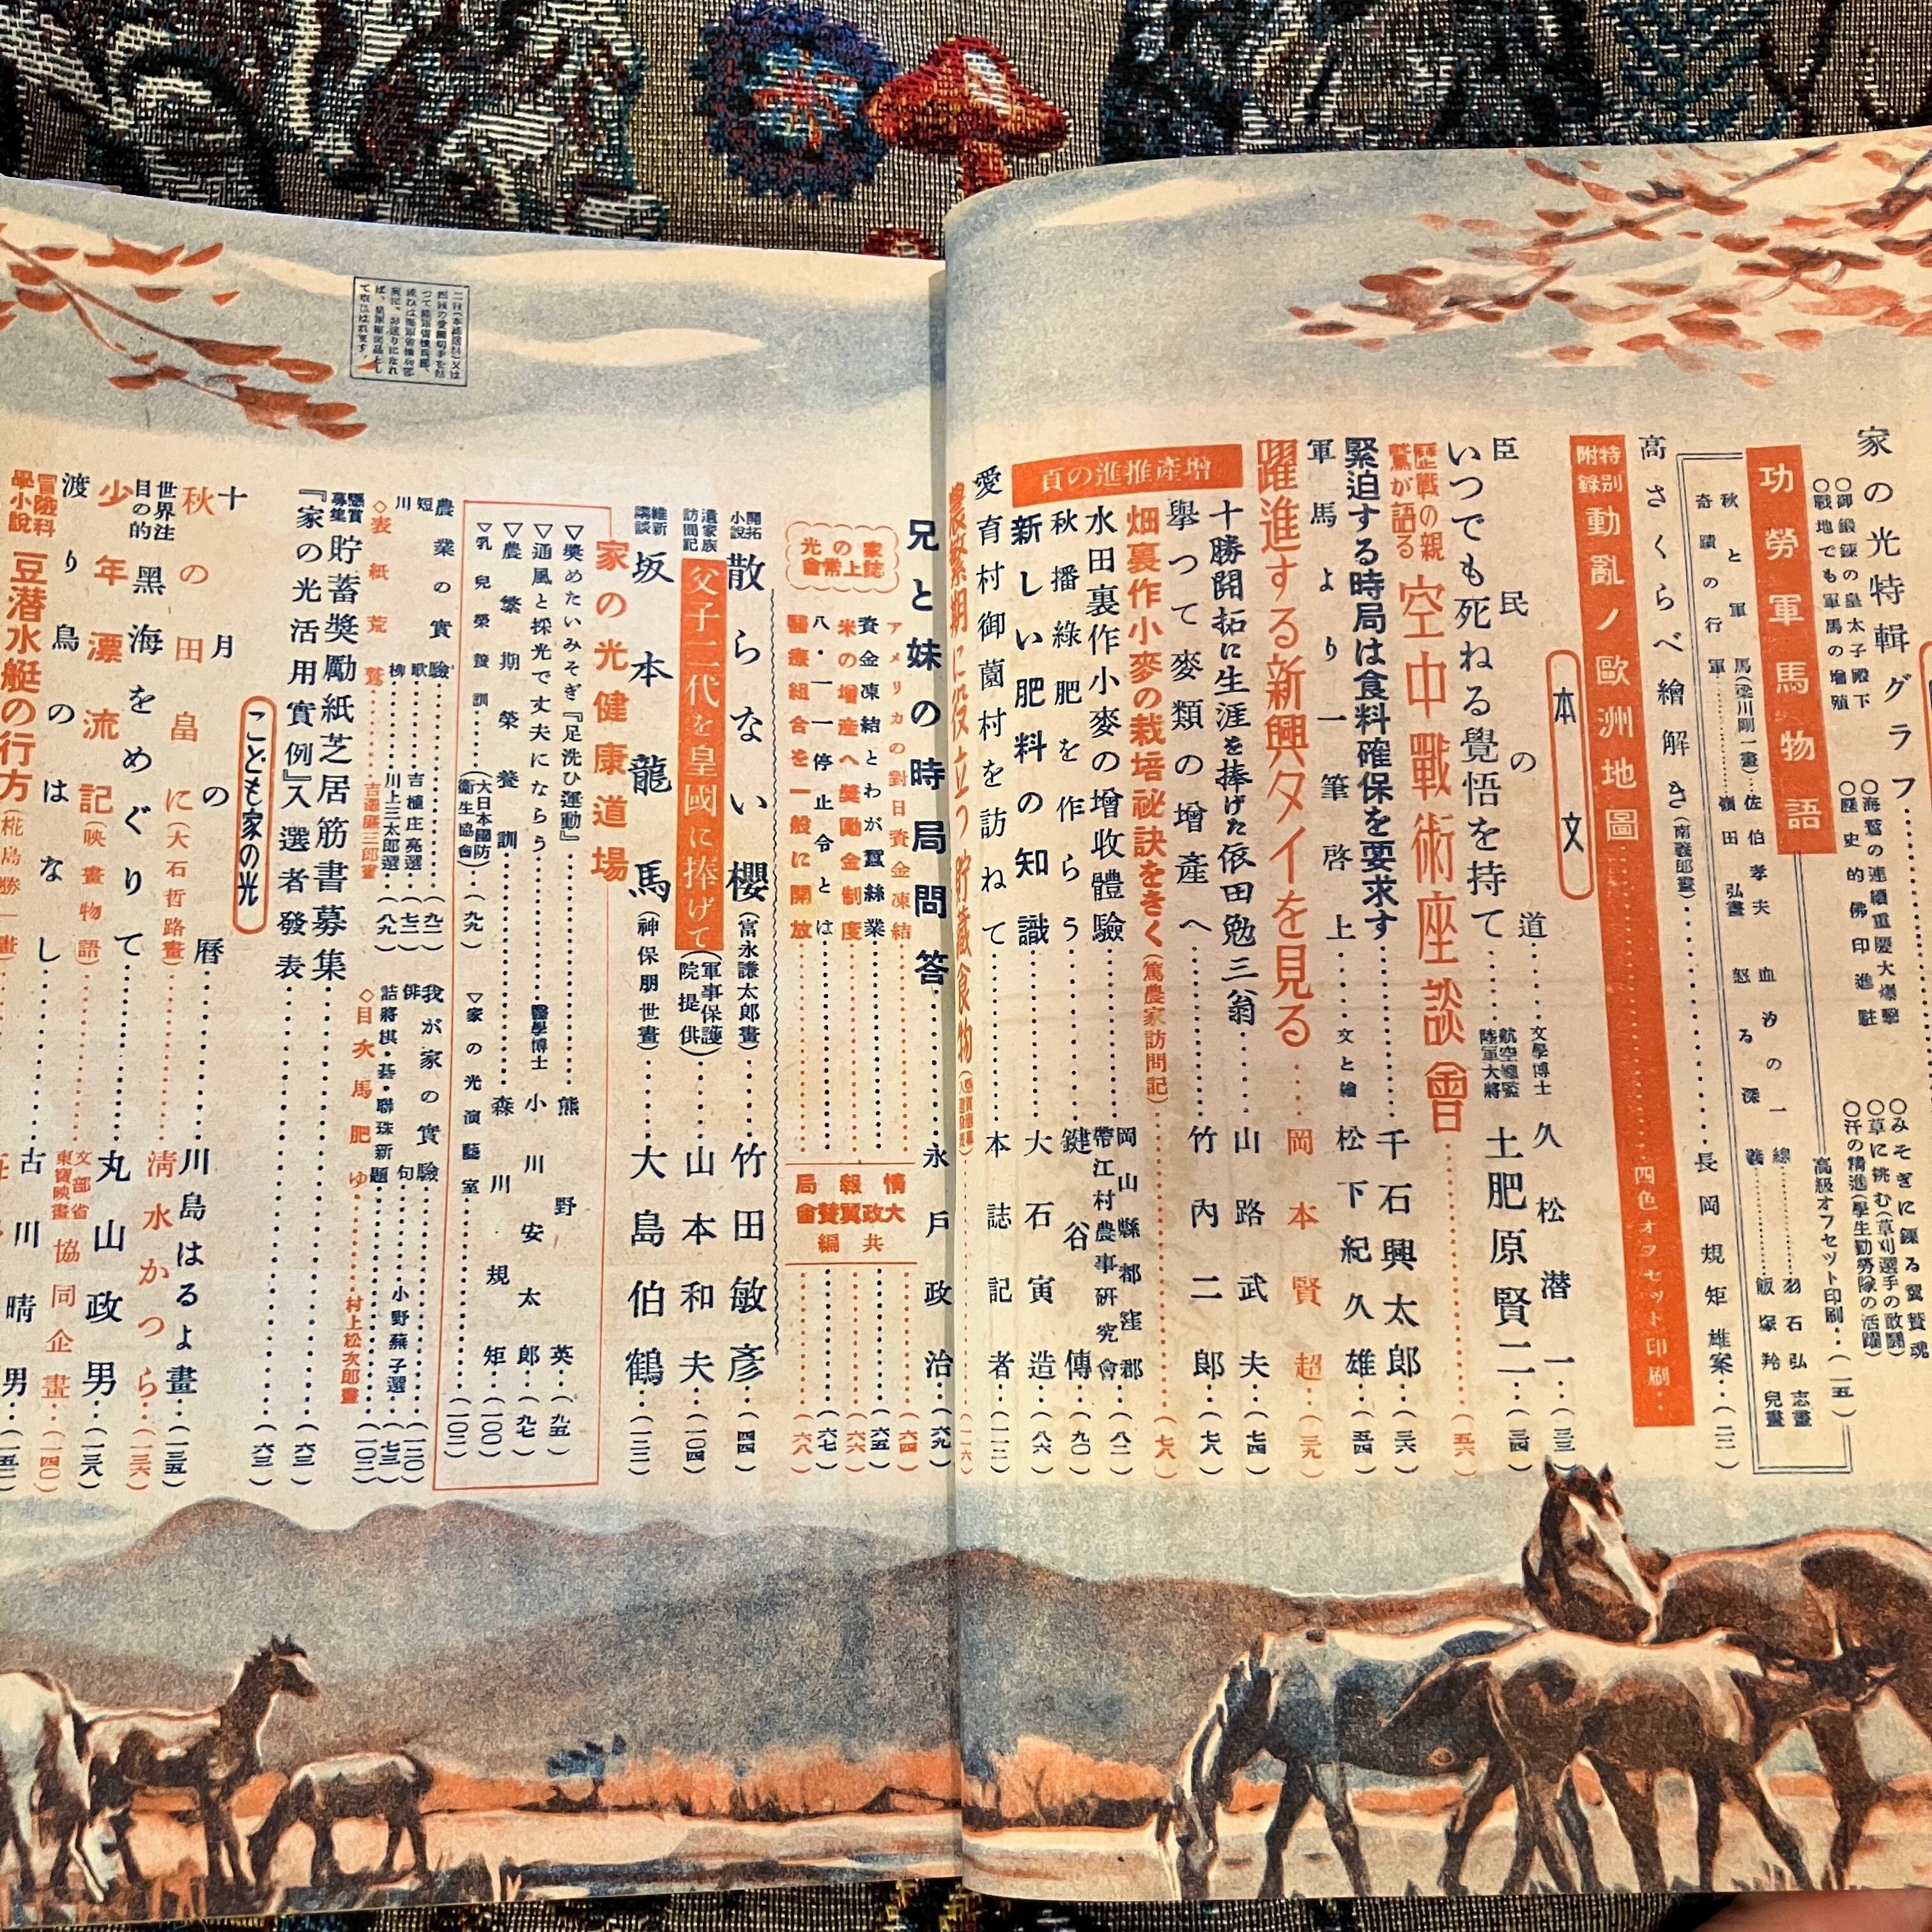 家の光特輯グラフ
○御鍛錬の皇太子殿下
○戰地でも軍馬の増殖
○海鷲の連續重慶大爆擊
○歷史的佛印進駐
○みそぎに錬る翼賛魂
○草に挑む(草刈選手の敢闘)
○汗の精進(學生勤勞隊の活躍)
高級オフセット印刷…(一五)
功勞軍馬物語
秋と軍馬(梁川剛一畫)…佐伯孝夫
血汐の一線…羽石弘志畫
奇蹟の行軍…嶺田弘畫
怒る深谿…飯塚羚兒畫
高さくらべ繪解き(南義郎畫)…長岡規矩雄案…(二二)
特別附錄 動亂ノ歐洲地圖…四色オフセット印刷…
本文
臣民の道…文學博士 久松潜一…(三三)
いつでも死ねる覺悟を持て…航空總監 陸軍大將 土肥原賢二…(三四)
歷戰の親鷲が語る 空中戰術座談會…(五六)
緊迫する時局は食料確保を要求す…千石興太郎…(三六)
軍馬より一筆啓上…文と繪 松下紀久雄…(五四)
躍進する新興タイを見る…岡本賢超…(三九)
增產推進の頁
十勝開拓に生涯を捧げた依田勉三翁…山路武夫…(七四)
擧つて麥類の增產へ…竹內二郎…(七八)
畑裏作小麥の栽培祕訣をきく(篤農家訪問記)…(七八)
水田裏作小麥の增收體驗…岡山縣都窪郡帶江村農事硏究會…(八二)
秋播綠肥を作らう…鍵谷傳…(九〇)
新しい肥料の知識…大石寅造…(八六)
愛育村御薗村を訪ねて…本誌記者…(一一三)
農繁期に役立つ貯藏食物…(一一六)
兄と妹の時局問答…永戶政治…(六九)
家の光誌上常會
アメリカの對日資金凍結…(六四)
資金凍結とわが蠶絲業…(六五)
米の增產へ奬勵金制度…(六六)
八・一一停止令とは…(六七)
醫療組合を一般に開放…(六八)
情報局
大政翼賛會
共編
開拓小說 散らない櫻(富永謙太郎畫)…竹田敏彥…(四四)
遺家族訪問記 父子二代を皇國に捧げて(軍事保護院提供)…山本和夫…(一〇四)
維新講談 坂本龍馬(神保朋世畫)…大島伯鶴…(一二三)
家の光健康道場
▽奬めたいみそぎ『足洗ひ運動』…熊野英…(九五)
▽通風と採光で丈夫にならう…醫學博士 小川安太郎…(九七)
▽農繁期榮養訓…森川規矩…(一〇〇)
▽乳兒榮養訓…(大日本國防衞生協會)…(九九)
▽家の光演藝室…(一〇二)
農業の實驗…(九二)
我が家の實驗…(一二〇)
短歌…吉植庄亮選…(七三)
俳句…小野蕪子選…(七三)
川柳…川上三太郎選…(八九)
詰將棋・碁・聯珠新題…(一〇二)
◇表紙 荒鷲…吉澤廉三郎畫
◇目次 馬肥ゆ…村上松次郎畫
懸賞募集 貯蓄奬勵紙芝居筋書募集…(六三)
『家の光活用實例』入選者發表…(六三)
こども家の光
十月の曆…川島はるよ畫…(一三五)
秋の田畠に(大石哲路畫)…淸水かつら…(一三六)
世界注目の的 黑海をめぐりて…丸山政男…(一三八)
少年漂流記(映畫物語)…文部省 東寶映畫 協同企畫…(一四〇)
渡り鳥のはなし…古川晴男…(一五二)
冒險科學小說 豆潜水艇の行方